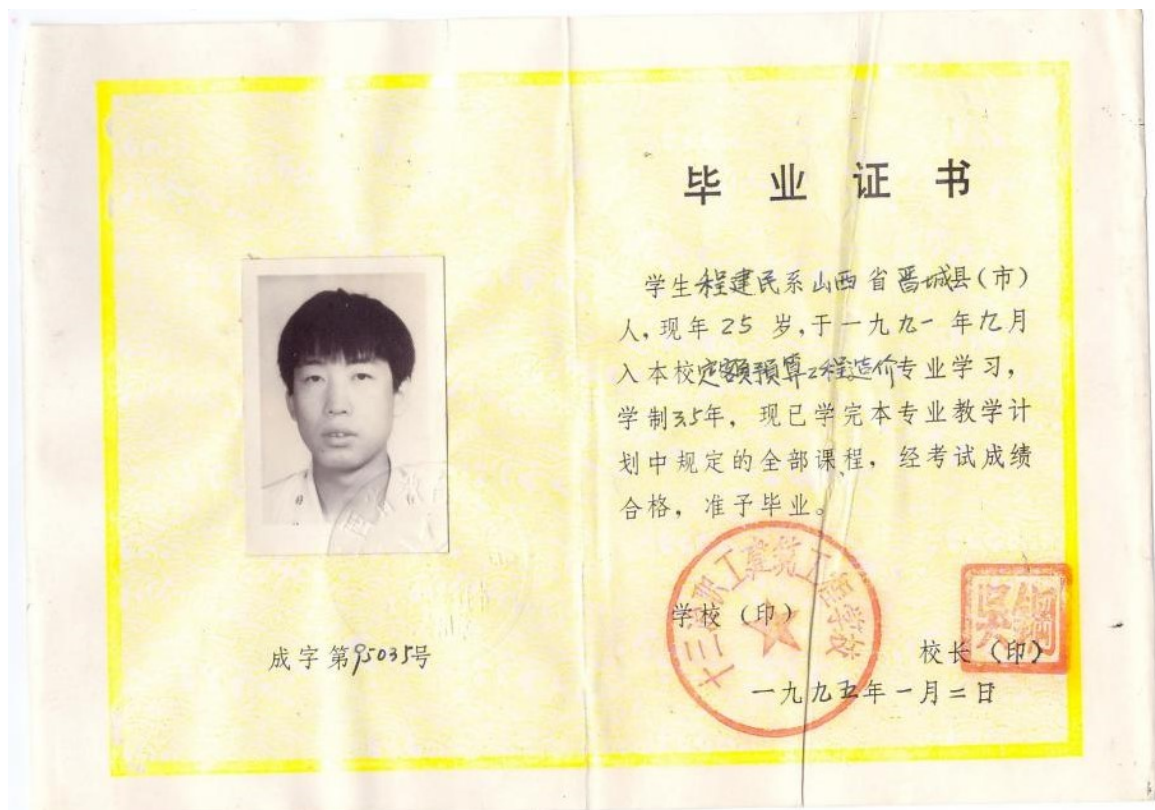 毕业证书
学生程建民系山西省晋城县(市)
人,现年25岁,于一九九一年九月
入本校定额预算工程造价专业学习,
学制3.5年,现已学完本专业教学计
划中规定的全部课程,经考试成绩
合格,准予毕业。
十三冶职工建筑工程学校
学校(印)
校长(印)
一九九五年一月二日
成字第95035号